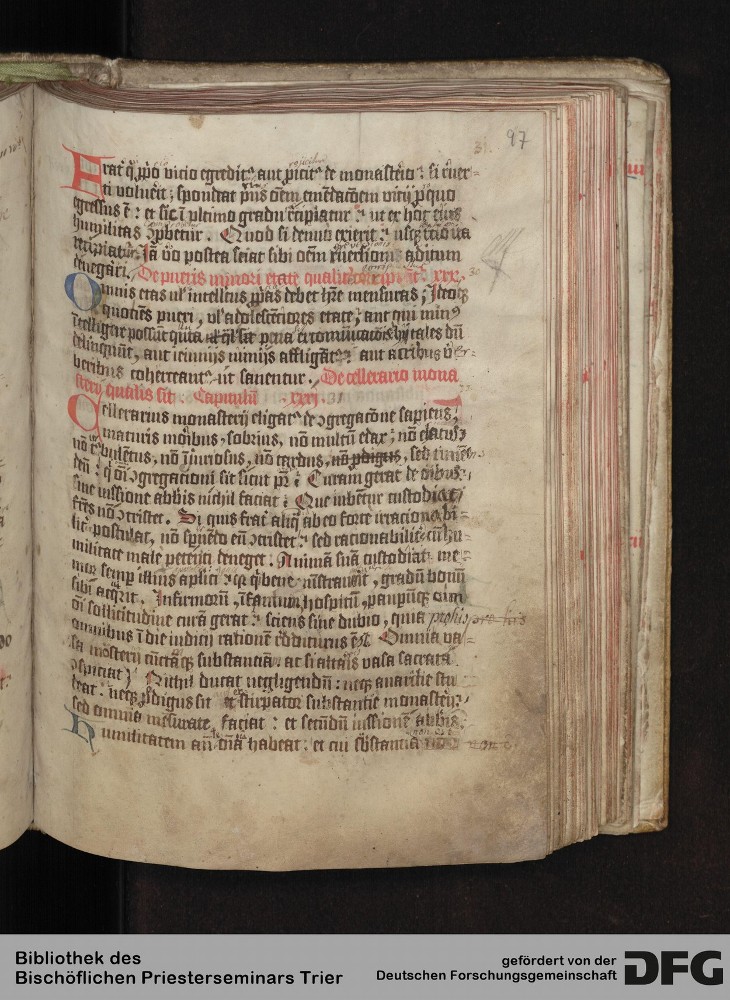 31. 97
Frat̓ q̓ ꝓp̓o vicio egredit̓, aut ꝓicit̓ de monasterio: si reuer-
ti voluerit; spondeat p̓us oēm emēdacōem vitij p̓ quo
egressus ē: et sic ī vltimo gradu recipiatur: ut ex hoc eius
humilitas ꝯprobetur. Quod si denuo exierit: usq̓ tercio ita
recipiatur. Jā v̓o postea sciat sibi oēm reuersionis aditum
denegari. De pueris minori etate qualit̓ corripiāt̓. xxx. 30
Omnis etas ul̓ intellectus ꝓp̓as debet h̓re mensuras; Ideoq̓
quotiens pueri, vl̓ adolescētiores etate; aut qui minus
ītelligere possunt quāta pena excommunicacōis; hij tales dū
delinquūt, aut ieiunijs nimijs affligāt̓: aut acribus v̓-
beribus coherceant̓ ut sanentur. De cellerario mona
sterij qualis sit. Capitulū .xxxj. 31
Cellerarius monasterij eligat̓ de ꝯgregacōne sapiens;
maturis moribus, sobrius, nō multū edax; nō elatus;
nō turbulētus, nō iniuriosus, nō tardus, nō ꝓdigus, sed timēs
deū: q̓ oī ꝯgregationi sit sicut pr̄: Curam gerat de oībus;
sine iussione abbīs nichil faciat: Que iubētur custodiat;
fr̄es nō ꝯtristet. Si quis frat̓ aliq̓ ab eo forte irracionabi-
lit̓ postulat, nō sp̓nēdo eū ꝯtristet: sed racionabilit̓ cū hu-
militate male petenti deneget. Animā suā custodiat: me-
mor semp̓ illius ap̓lici: q̓a q̓ bene mīstrauerit, gradū bonū
sibi acq̓rit. Infirmorū, īfantium, hospitū, pauperūq̓ cum
oī sollicitudine curā gerat: sciens sine dubio, quia pro hijs
omnibus ī die iudicij rationē redditurus est. Omnia va-
sa mōsterij cūctāq̓ substantiā, ac si altaris vasa sacrata
ꝯspiciat; Nichil ducat negligendū: neq̓ auaricie stu
deat: neq̓ ꝓdigus sit et stirpator substantie monasterij:
sed omnia mensurate faciat: et secūdū iussionē abbīs.
Humilitatem an̄ om̄ia habeat: et cui substantia nō
Bibliothek des
Bischöflichen Priesterseminars Trier
gefördert von der
Deutschen Forschungsgemeinschaft
DFG